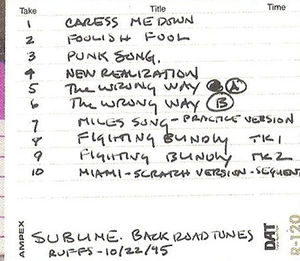 Take Title Time
1 CARESS ME DOWN
2 FOOLISH FOOL
3 PUNK SONG.
4 NEW REALIZATION
5 The WRONG WAY A
6 The WRONG WAY B
7 MILES SONG - PRACTICE VERSION
8 FIGHTING BLINDLY TK1
9 FIGHTING BLINDLY TK2
10 MIAMI - SCRATCH VERSION - SEQUENC
AMPEX
SUBLIME. BACK ROAD TUNES
RUFFS - 10/22/95
DAT
R-120